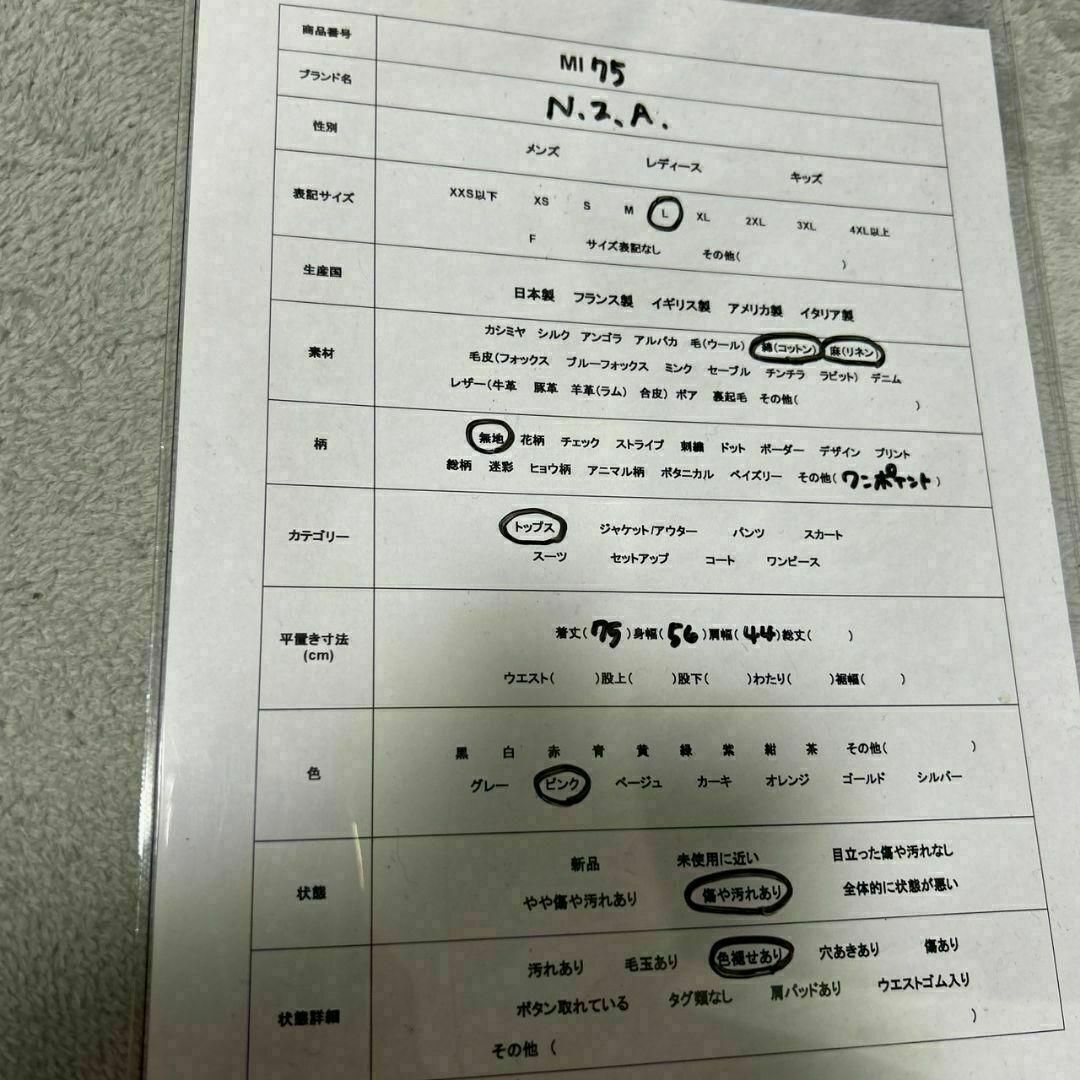 商品番号 MI 75
ブランド名 N.2.A.
性別 メンズ レディース キッズ
表記サイズ XXS以下 XS S M L XL 2XL 3XL 4XL以上
F サイズ表記なし その他( )
生産国 日本製 フランス製 イギリス製 アメリカ製 イタリア製
素材 カシミヤ シルク アンゴラ アルパカ 毛(ウール) 綿(コットン) 麻(リネン)
毛皮(フォックス ブルーフォックス ミンク セーブル チンチラ ラビット) デニム
レザー(牛革 豚革 羊革(ラム) 合皮) ボア 裏起毛 その他( )
柄 無地 花柄 チェック ストライプ 刺繍 ドット ボーダー デザイン プリント
総柄 迷彩 ヒョウ柄 アニマル柄 ボタニカル ペイズリー その他(ワンポイント)
カテゴリー トップス ジャケット/アウター パンツ スカート
スーツ セットアップ コート ワンピース
平置き寸法
(cm)
着丈(75)身幅(56)肩幅(44)総丈( )
ウエスト( )股上( )股下( )わたり( )裾幅( )
色 黒 白 赤 青 黄 緑 紫 紺 茶 その他( )
グレー ピンク ベージュ カーキ オレンジ ゴールド シルバー
状態 新品 未使用に近い 目立った傷や汚れなし
やや傷や汚れあり 傷や汚れあり 全体的に状態が悪い
状態詳細 汚れあり 毛玉あり 色褪せあり 穴あきあり 傷あり
ボタン取れている タグ類なし 肩パッドあり ウエストゴム入り
その他 ( )